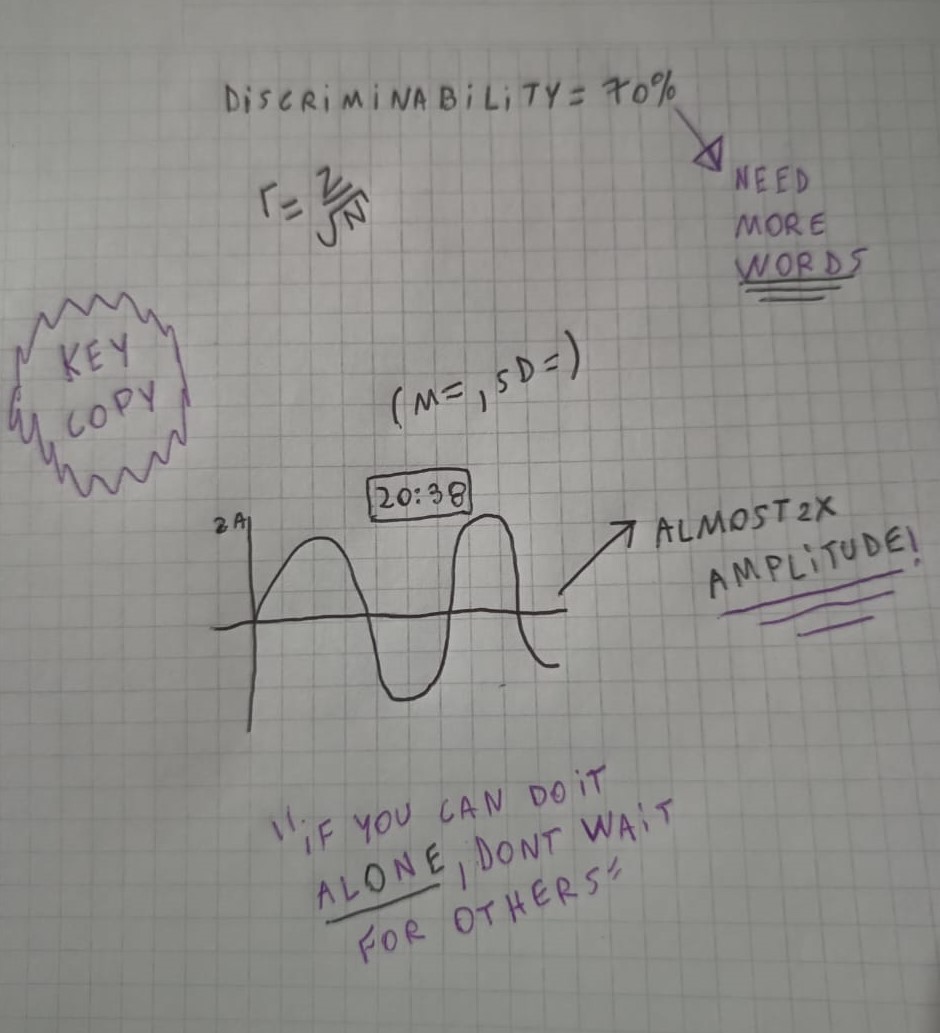 DiSCRiMiNABiLiTY = 70%
NEED
MORE
WORDS
r = Z/√N
KEY
COPY
(M= , SD=)
20:38
2A
ALMOST 2X
AMPLiTUDE!
"iF YOU CAN DO iT
ALONE, DONT WAiT
FOR OTHERS"